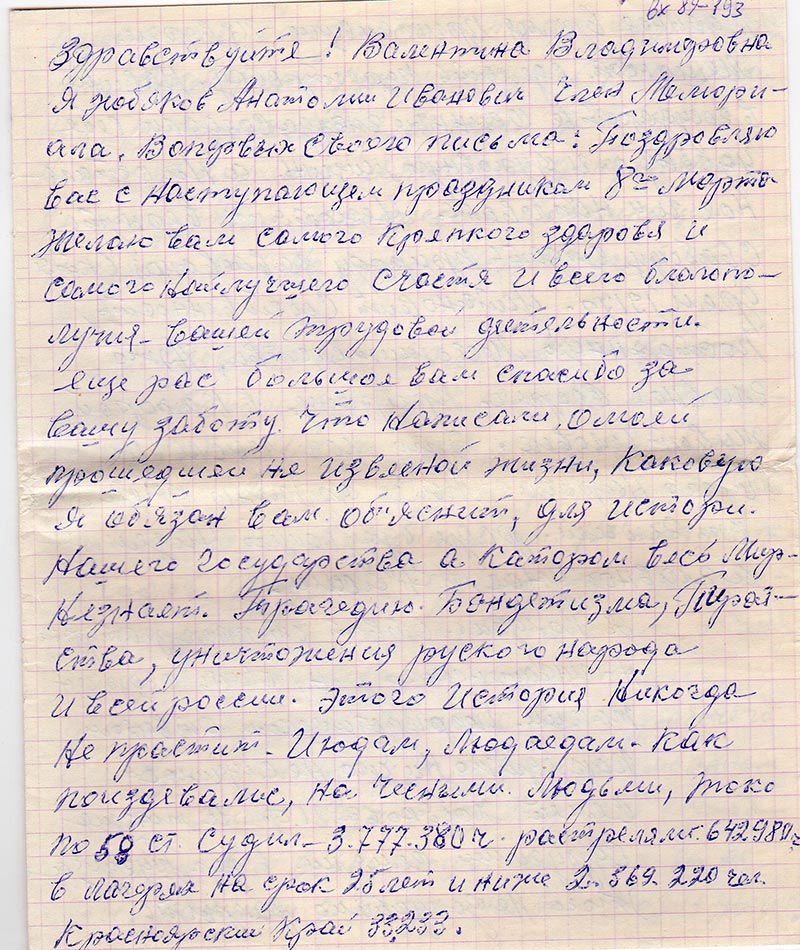 вх 89-193
Здравствуйте! Валентина Владимировна
Я Анатолии Иванович Член Мемори-
ала. Вопервых своего письма: Поздровляю
вас с наступающем праздником 8го Марта
желаю вам самого Крепкого здоровя и
самого Наилучшего Счастя И всего благопо-
лучия- вашей трудовой деятельности.
еще рас большое вам спасибо за
вашу заботу. Что Написали. о моей
прошедшей не извесной жизни, Каковую
Я обязан вам. об'яснит, для истори.
Нашего государства а Катором весь Мир-
Незнает. Трагедию. Бандетизма, Пират-
ства, уничтожения руского народа
И всей россии. этого История Никогда
Не простит- Июдам, Людаедам- Как
поиздевалис, На Чесными. Людьми, токо
по 58 ст. Судил- 3.777.380ч. растрелян. 642980ч
в лагерях на срок 25 лет и ниже 2.369.220 чел.
Красноярский Край 33233.